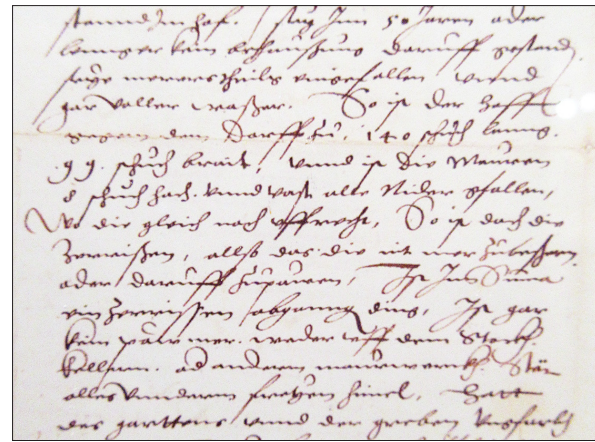 stennd Im hof. sey Inn 50 Jaren oder
lennger kain behaußung daruff gestannd,
seye merertheils eingefallen vnnd
gar voller waßer. So ist der Hoff
gegen dem Dorff zu, 140 schuch lanng.
99. schuch brait, vnnd ist die Mauren
8 schuch hoch. vnnd vast alle Nider gfallen,
Wo die gleich noch vffrecht, So ist doch die
Zerrißen, allso das die nit mer zubeßern
oder daruff zupauen, Ist Inn Suma
ein Zerrissen abganng ding, Ist gar
kein paw mer. weder vff dem Stockh.
kellern. od anderm maurwerckh. Stät
alles vnnderm freyen himel, Hatt
des garttens vnnd der greben